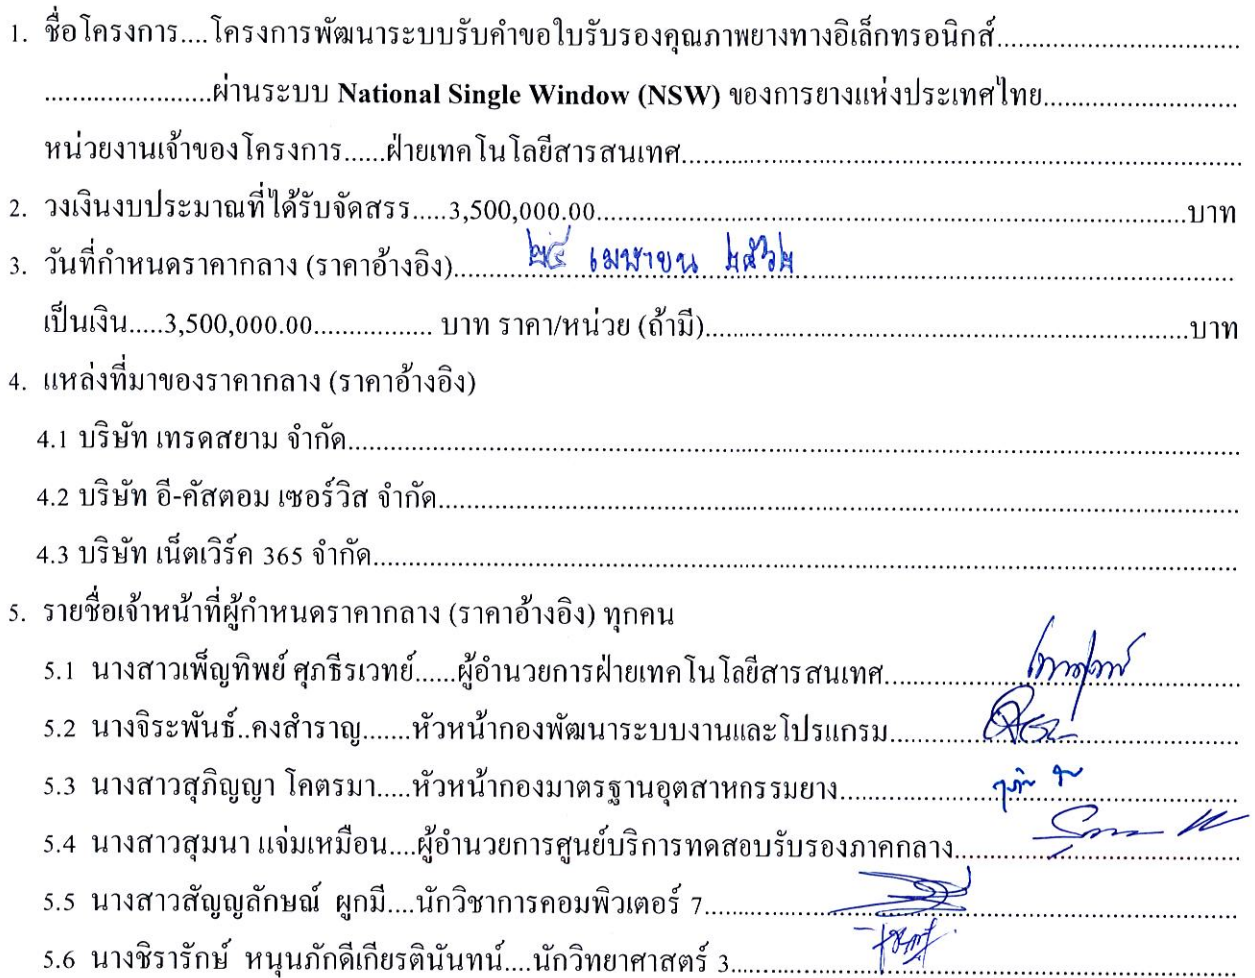 1. ชื่อโครงการ....โครงการพัฒนาระบบรับคำขอใบรับรองคุณภาพยางทางอิเล็กทรอนิกส์....................................
........................ผ่านระบบ National Single Window (NSW) ของการยางแห่งประเทศไทย............................
หน่วยงานเจ้าของโครงการ......ฝ่ายเทคโนโลยีสารสนเทศ................................................................................
2. วงเงินงบประมาณที่ได้รับจัดสรร.....3,500,000.00.....................................................................................บาท
3. วันที่กำหนดราคากลาง (ราคาอ้างอิง)..........๒๔ เมษายน ๒๕๖๒..............................................................
เป็นเงิน.....3,500,000.00................. บาท ราคา/หน่วย (ถ้ามี)......................................................................บาท
4. แหล่งที่มาของราคากลาง (ราคาอ้างอิง)
4.1 บริษัท เทรดสยาม จำกัด.........................................................................................................................
4.2 บริษัท อี-คัสตอม เซอร์วิส จำกัด.............................................................................................................
4.3 บริษัท เน็ตเวิร์ค 365 จำกัด.....................................................................................................................
5. รายชื่อเจ้าหน้าที่ผู้กำหนดราคากลาง (ราคาอ้างอิง) ทุกคน
5.1 นางสาวเพ็ญทิพย์ ศุภธีรเวทย์......ผู้อำนวยการฝ่ายเทคโนโลยีสารสนเทศ................................................
5.2 นางจิระพันธ์..คงสำราญ.......หัวหน้ากองพัฒนาระบบงานและโปรแกรม................................................
5.3 นางสาวสุภิญญา โคตรมา.....หัวหน้ากองมาตรฐานอุตสาหกรรมยาง......................................................
5.4 นางสาวสุมนา แจ่มเหมือน....ผู้อำนวยการศูนย์บริการทดสอบรับรองภาคกลาง......................................
5.5 นางสาวสัญญลักษณ์ ผูกมี....นักวิชาการคอมพิวเตอร์ 7..........................................................................
5.6 นางชิรารักษ์ หนุนภักดีเกียรตินันทน์....นักวิทยาศาสตร์ 3.......................................................................